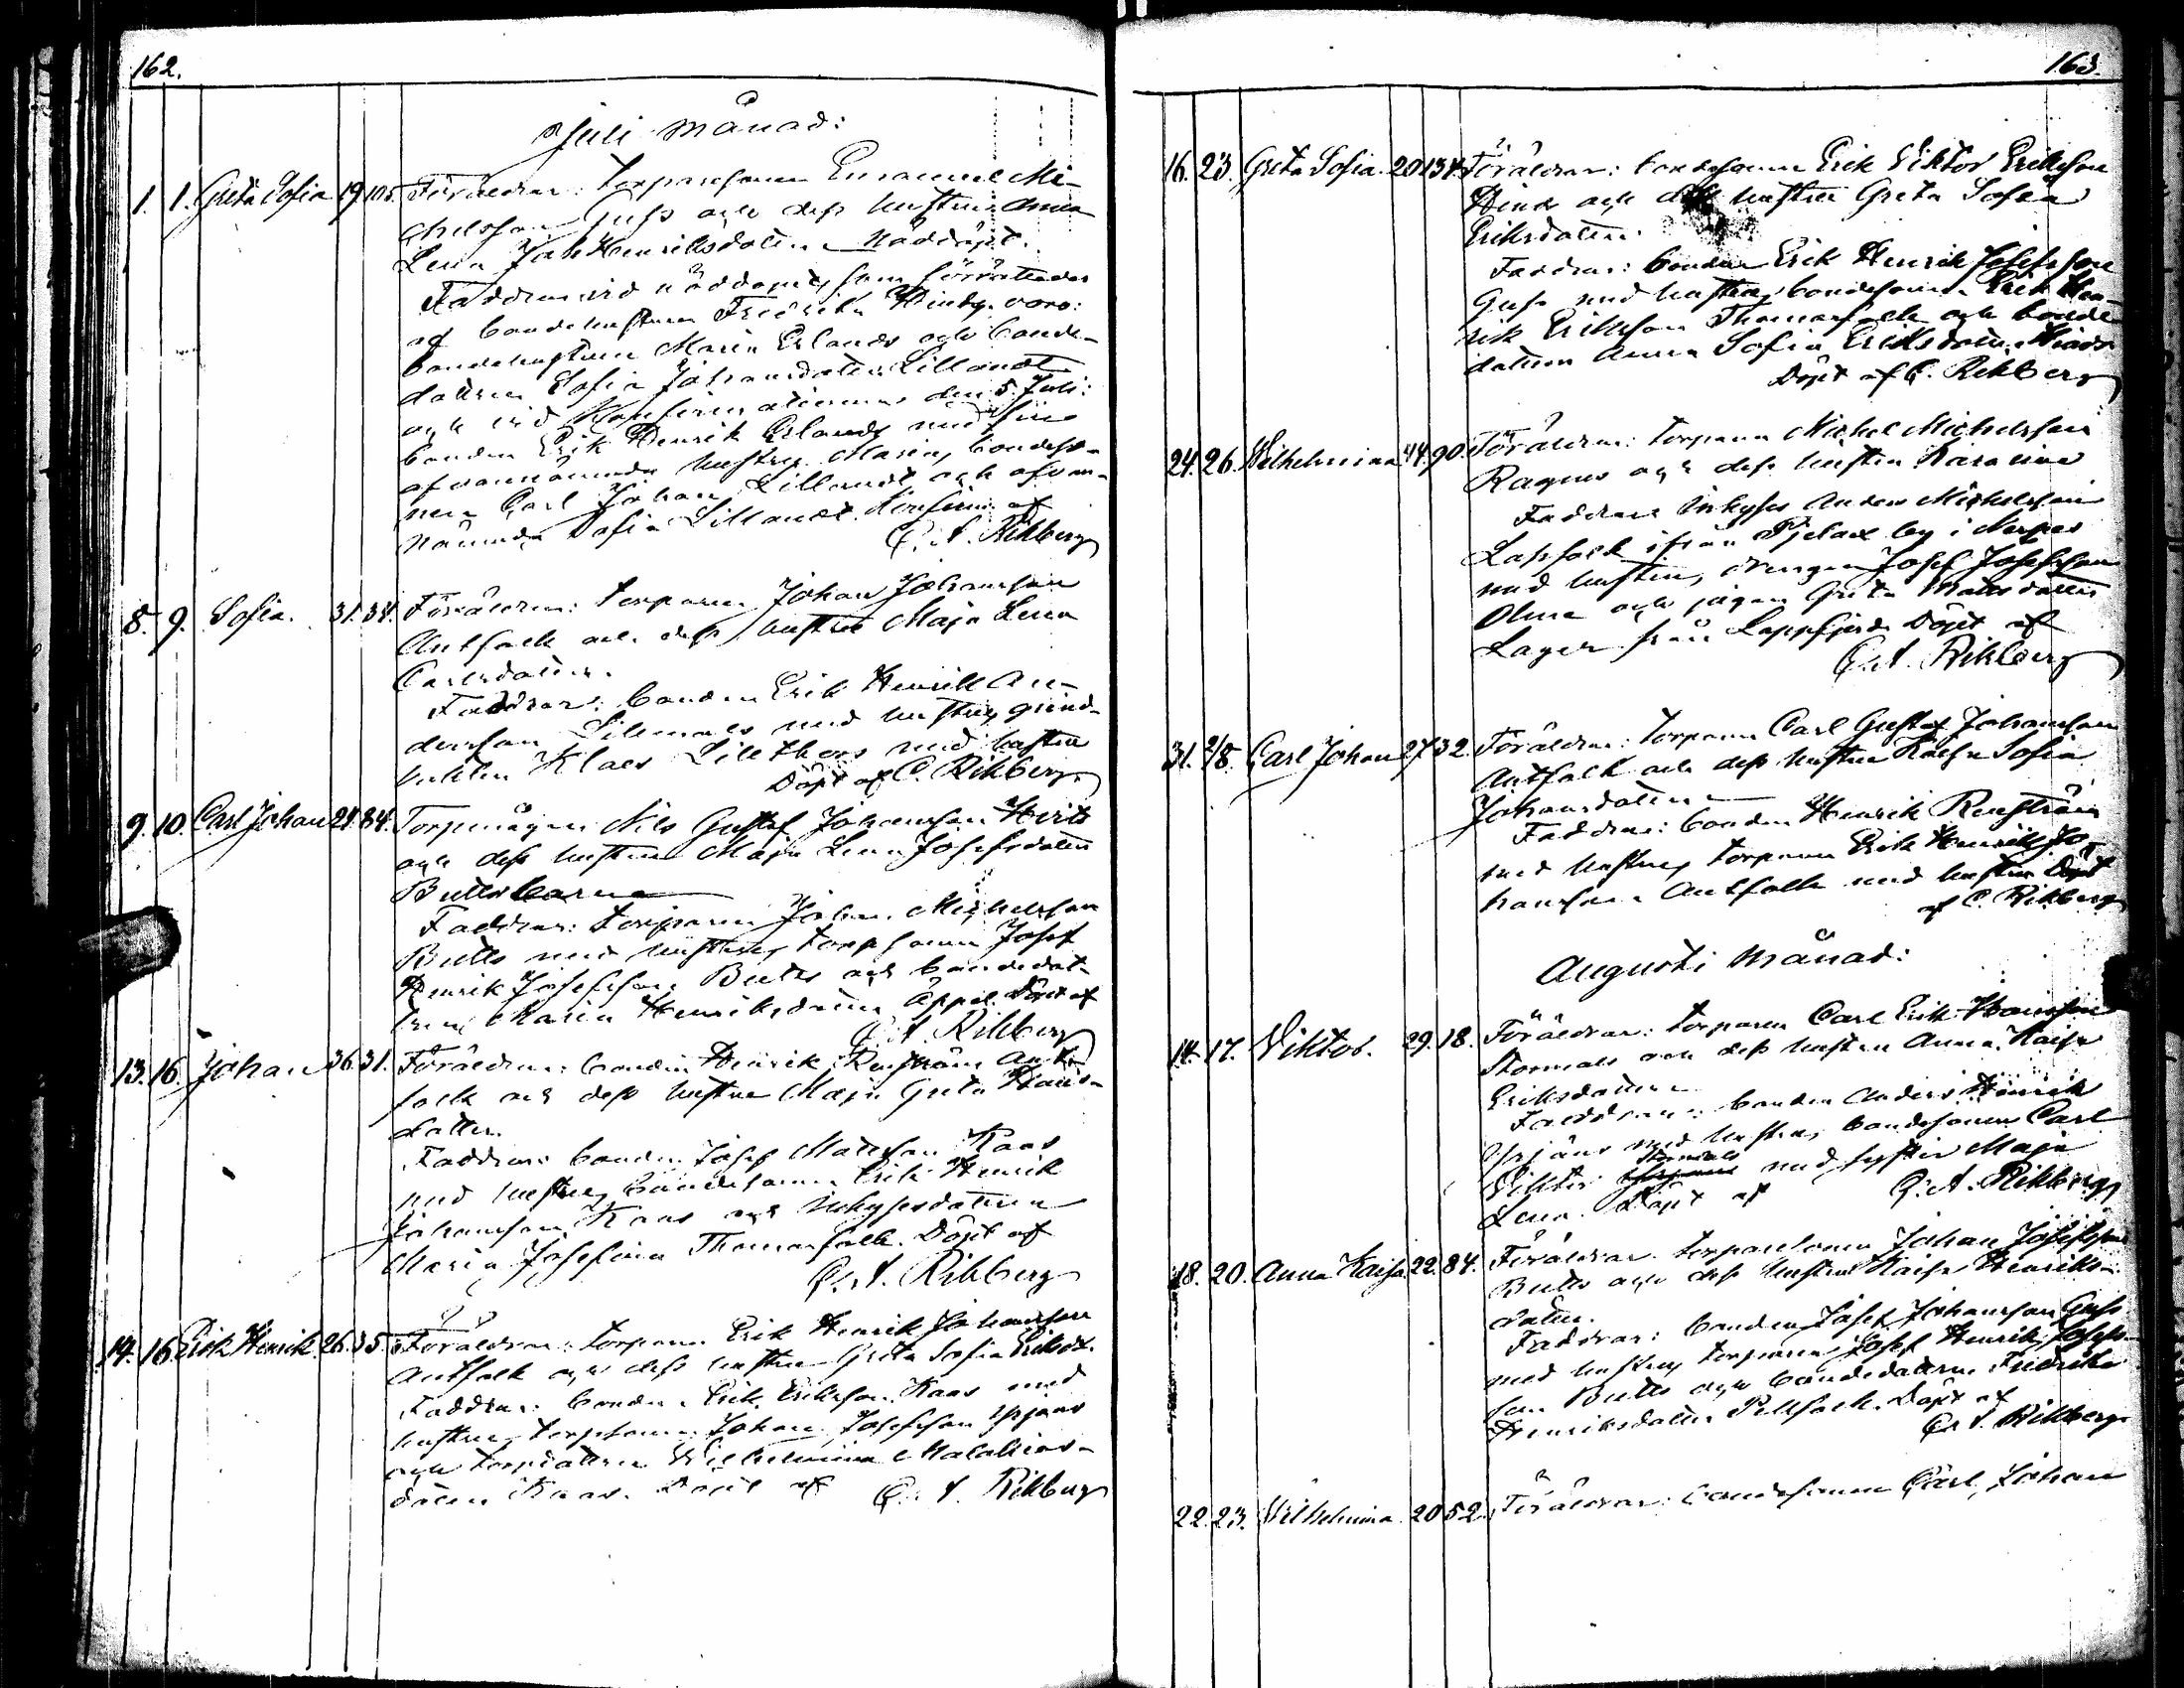 162.
Juli Månad:
1. 1. Greta Sofia 19. 105. Föräldrar: torparesonen Emanuel Mi-
chelsson Guss och dess hustru Anna
Lena Joh Henriksdotter Nöddöpt.
Faddrar vid nöddopet, som förrättades
af bondehustrun Fredrika Hinds, voro:
bondehustrun Maria Erlands och bonde-
dottren Sofia Johansdotter Lillandt
och vid Konfirmationen den 5 Juli:
bonden Erik Henrik Erlands med sin
ofvannämnda hustru Maria, bondeso-
nen Carl Johan Lillandt och ofvan-
nämnda Sofia Lillandt. Konfirm. af
C. A. Rihlberg
8. 9. Sofia. 31. 34. Föräldrar: torparen Johan Johansson
Antfolk och dess hustru Maja Lena
Carlsdotter.
Faddrar: bonden Erik Henrik An-
dersson Lillmals med hustru,
Klaes Lillthors med hustru
Döpt af C. Rihlberg
9. 10. Carl Johan 29. 84. Torpmågen Nils Gustaf Johansson
och dess hustru Maja Lena Josefsdotter
Butts barn
Faddrar: torparen Johan Michelsson
Butts med hustru, torpsonen Josef
Henrik Josefsson Butts och bondedot-
tren Maria Henriksdotter Äppel. Döpt af
C. A. Rihlberg
13. 16. Johan 36. 31. Föräldrar: bonden Henrik Renström Ant-
folk och dess hustru Maja Greta Hans-
dotter.
Faddrar: bonden Josef Mattsson Kaas
med hustru, bondesonen Erik Henrik
Johansson Kaas och inhysesdottren
Maria Josefina Thomasfolk. Döpt af
C. A. Rihlberg
14. 16. Erik Henrik 26. 35. Föräldrar: torparen Erik Henrik Johansson
Antfolk och dess hustru Greta Sofia Eriksd.
Faddrar: bonden Erik Eriksson Kaas med
hustru, torpsonen Johan Josefsson Yrjans
och torpdottren Wilhelmina Malakias-
dotter Kaas. Döpt af C. A. Rihlberg
163.
16. 23. Greta Sofia. 20 134. Föräldrar: bondesonen Erik Viktor Eriksson
Hinds och dess hustru Greta Sofia
Eriksdotter.
Faddrar: bonden Erik Henrik Josefsson
Guss med hustru, bondesonen Erik Hen-
rik Eriksson Thomasfolk och bonde-
dottren Anna Sofia Eriksdotter Hinds
Döpt af C. Rihlberg
24. 26. Wilhelmina 44. 90. Föräldrar: torparen Michel Michelsson
Ragnus och dess hustru Karolina
Faddrar: inhyses Anders Michelsson
Lassfolk ifrån Pjelax by i Nerpes
med hustru, drengen Josef Josefsson
och pigan Greta Mattsdotter
Lager från Lappfjerd. Döpt af
C. A. Rihlberg
31. 2/8. Carl Johan 27. 32. Föräldrar: torparen Carl Gustaf Johansson
Antfolk och dess hustru Kaisa Sofia
Johansdotter
Faddrar: bonden Henrik Renström
med hustru, torparen Erik Henrik Jo-
hansson Antfolk med hustru Döpt
af C. Rihlberg
Augusti Månad:
14. 17. Viktor. 29. 18. Föräldrar: torparen Carl Erik Hansson
Stormals och dess hustru Anna Kaisa
Eriksdotter
Faddrar: bonden Anders Henrik
Yrjans med hustru, bondesonen Carl
Viktor Stormals med syster Maja
Lena. Döpt af C. A. Rihlberg
18. 20. Anna Kaisa. 22. 84. Föräldrar: torparesonen Johan Josefsson
Butts och dess hustru Kaisa Henriks-
dotter.
Faddrar: bonden Josef Johansson Guss
med hustru, torparen Josef Henrik Josefs-
son Butts och bondedottren Fredrika
Henriksdotter Pellfolk. Döpt af
C. A. Rihlberg
22. 23. Wilhelmina. 20 52. Föräldrar: bondesonen Carl Johan